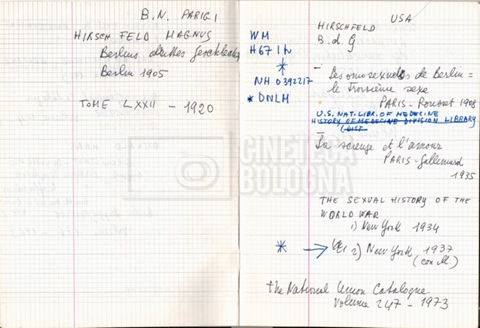 B.N. PARIGI
HIRSCHFELD MAGNUS
Berlins drittes Geschlecht
Berlin 1905
TOME LXXII - 1920
WM
H671h
*
NH 0392217
* DNLM
USA
HIRSCHFELD
B. d G
- Les omosexuels de Berlin =
le troisième sexe
PARIS - Rousset 1908
U.S. NAT. LIBR. OF MEDECINE
HISTORY OF MEDECINE DIVISION LIBRARY
science et l'amour
PARIS - Gallimard
1935
THE SEXUAL HISTORY OF THE
WORLD WAR
1) New York 1934
* → 2) New York 1937
(con M.)
the National Union Catalogue
Volume 247 - 1973
CINETECA
BOLOGNA